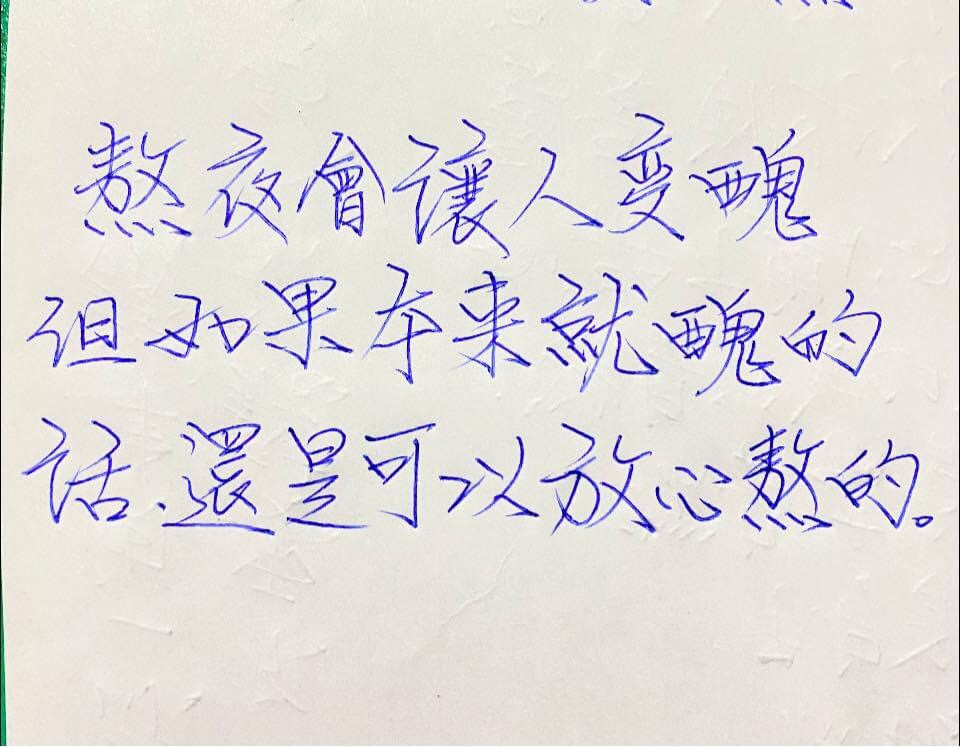 熬夜會讓人变醜
但如果本来就醜的
話、還是可以放心熬的。